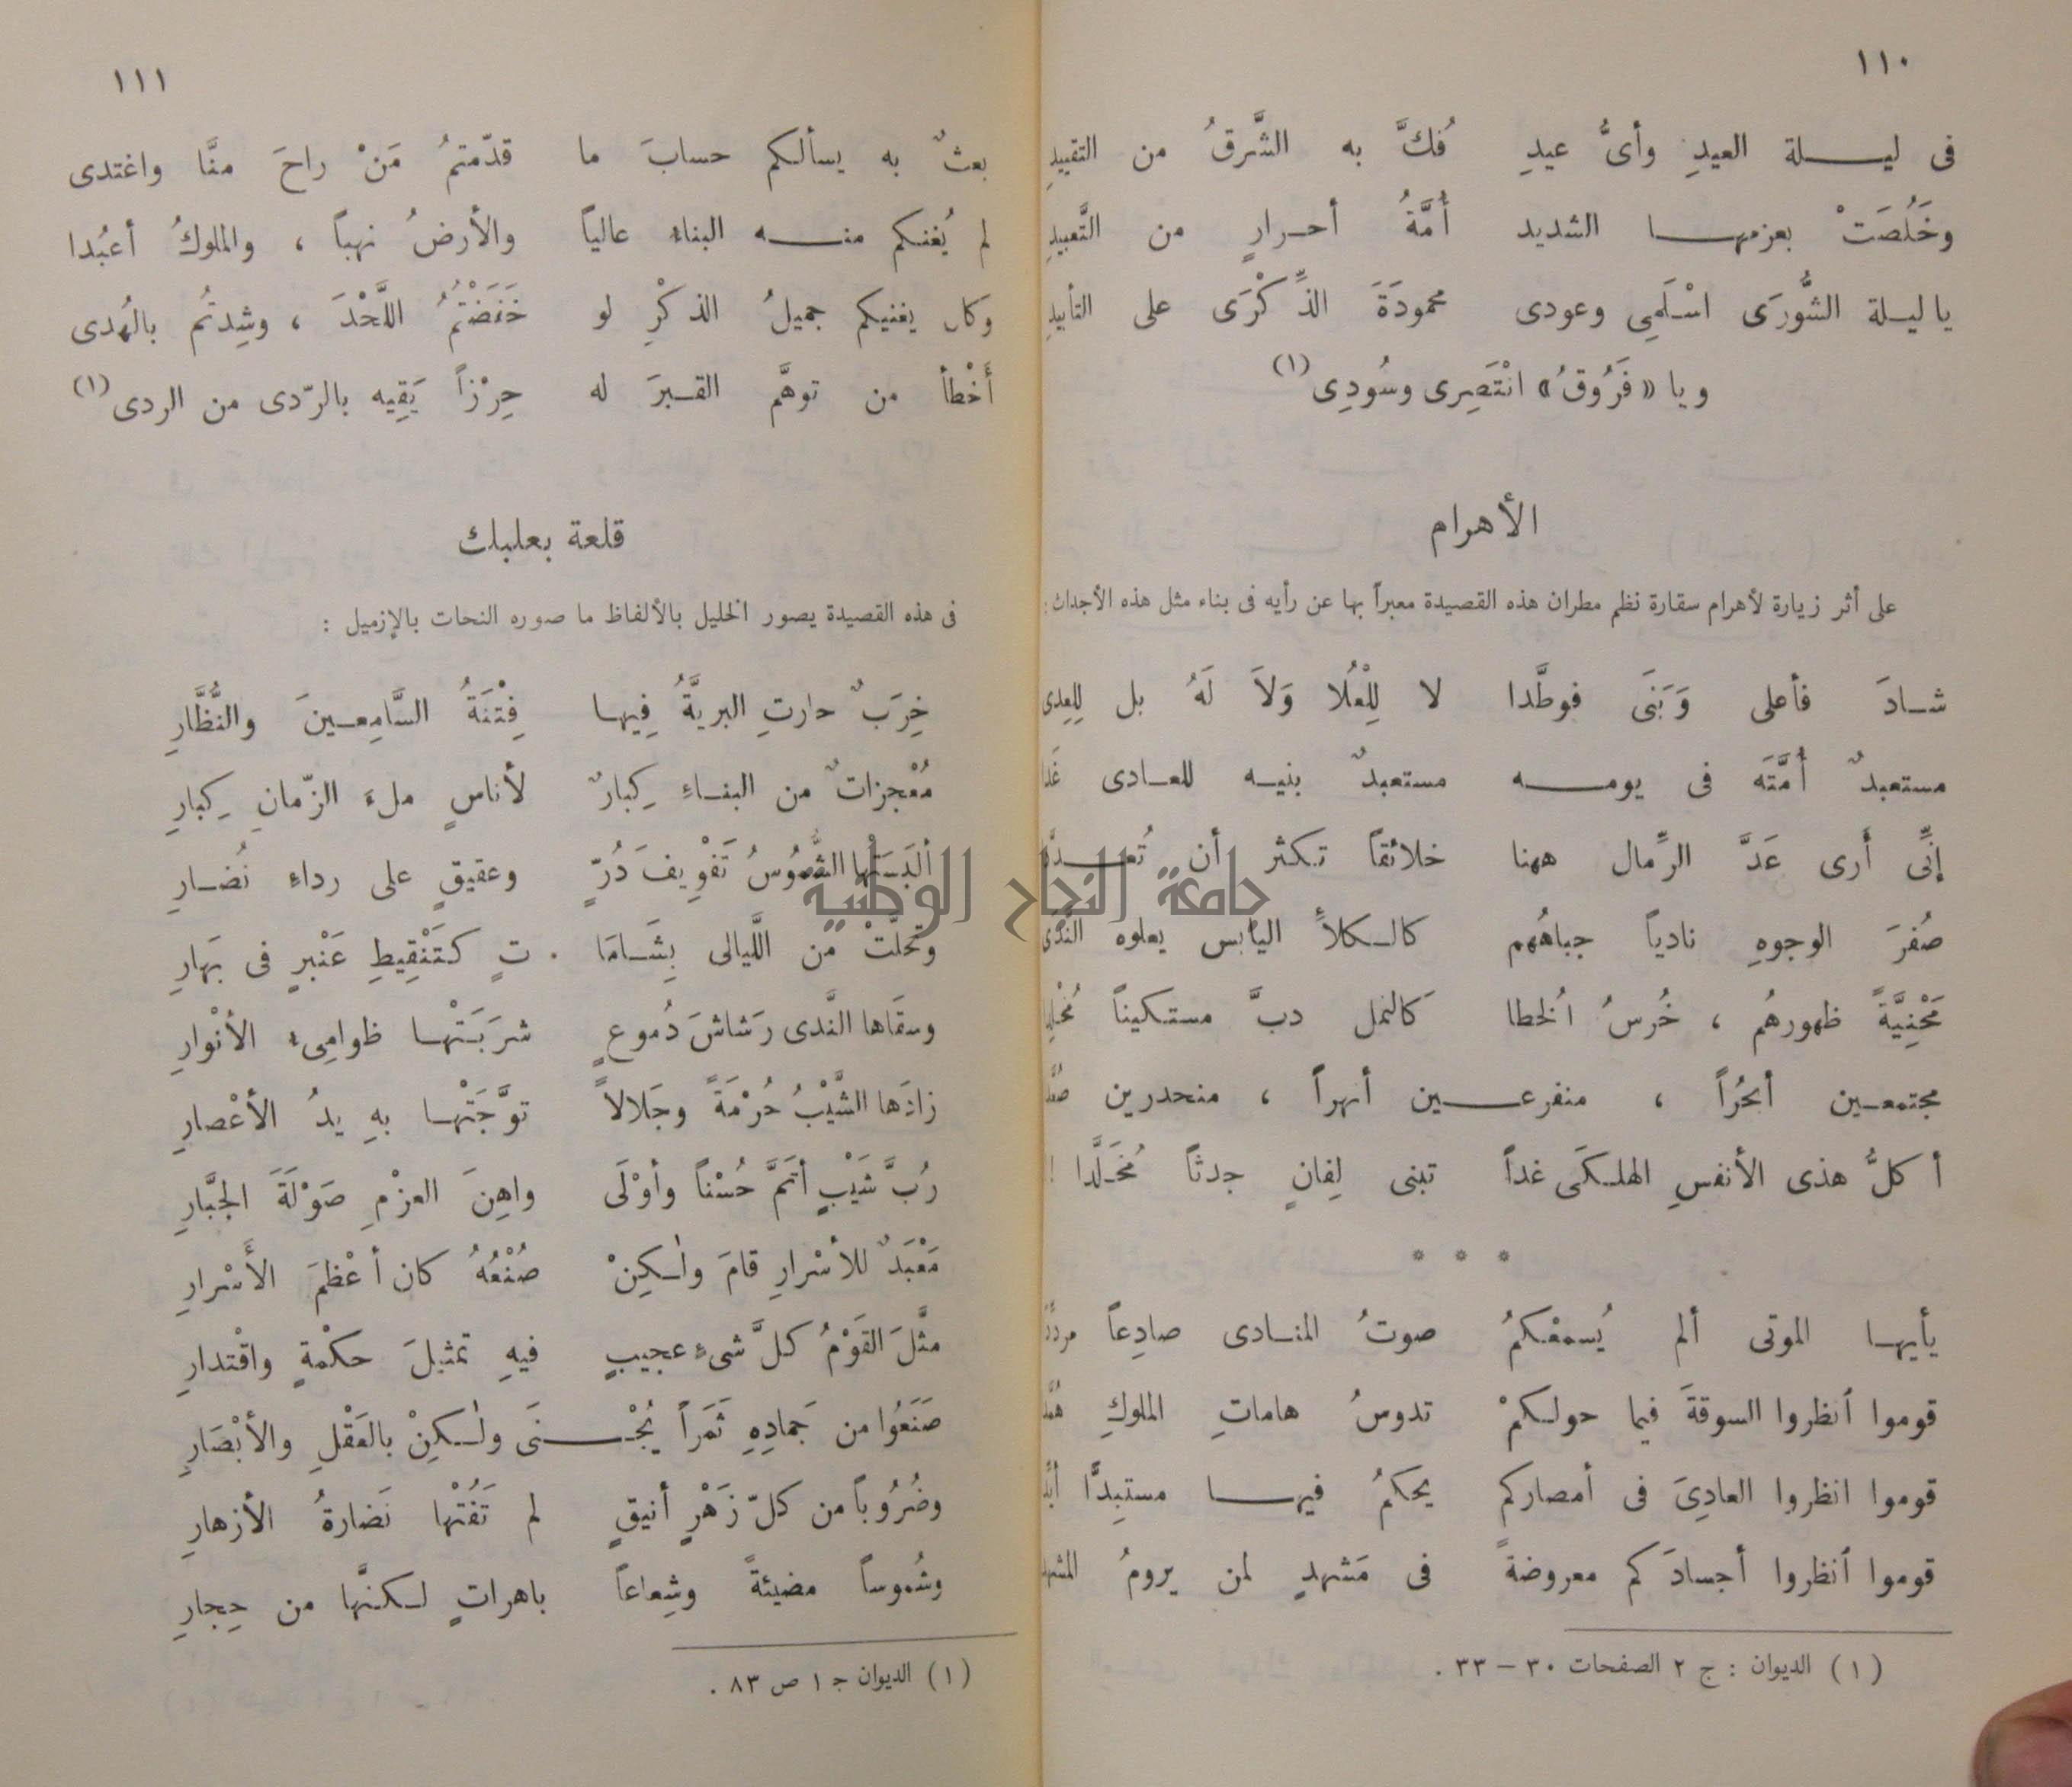 ١١٠
فى ليلة العيدِ وأىُّ عيدِ فُكَّ به الشَّرقُ من التقييدِ
وخَلُصَتْ بعزمها الشديد أُمَّةُ أحرارٍ من التَّعبيدِ
يا ليلة الشُّورَى اسْلَمِى وعودى محمودَةَ الذِّكْرَى على التأبيدِ
ويا «فَرُوقُ» انْتَصِرى وسُودِى (١)
الأهرام
على أثر زيارة لأهرام سقارة نظم مطران هذه القصيدة معبراً بها عن رأيه فى بناء مثل هذه الأجداث :
شادَ فأعلى وَبَنَى فوطَّدا لا لِلْعُلا وَلاَ لَهُ بل لِلعِدى
مستعبدٌ أُمَّتَه فى يومه مستعبدٌ بنيه للعادى غَدا
إنِّى أَرى عَدَّ الرِّمال ههنا خلائقاً تكثر أن تُعدَّدا
صُفرَ الوجوهِ نادياً جباهُهم كالكلأَ اليابس يعلوه النَّدَى
مَحْنِيَّةً ظهورهُم ، خُرسُ الخُطا كالنمل دبَّ مستكيناً
مجتمعين أبحُراً ، منفرعين أنهراً ، منحدرين
أكلُّ هذى الأنفسِ الهلكَى غداً تبنى لِفانٍ جدثاً مُخَلَّدا !!
* * *
يأيها الموتى ألم يُسمعْكمُ صوتُ المنادى صادِعاً
قوموا انظروا السوقةَ فيما حولكمْ تدوسُ هاماتِ الملوكِ
قوموا انظروا العادِىَ فى أمصاركم يحكمُ فيها مستبِدًّا
قوموا انظروا أجسادَكم معروضةً فى مَشهدٍ لمن يرومُ
(١) الديوان : ج ٢ الصفحات ٣٠ – ٣٣ .
١١١
بعثٌ به يسألكم حسابَ ما قدّمتمُ مَنْ راحَ منَّا واغتدى
لم يُغنكم منه البناء عالياً والأرضُ نهباً ، والملوكُ أعبُدا
وكان يغنيكم جميلُ الذكْرِ لو خَفَضْتُمُ اللَّحْدَ ، وشِدتُم بالهُدى
أَخْطأ من توهَّم القبرَ له حِرْزاً يَقِيه بالرّدى من الردى (١)
قلعة بعلبك
فى هذه القصيدة يصور الخليل بالألفاظ ما صوره النحات بالإزميل :
خِرَبٌ حارتِ البريَّةُ فِيها فِتْنَةُ السَّامِعينَ والنُّظَّارِ
مُعْجزاتٌ من البناءِ كِبارٌ لأناسٍ ملءَ الزّمانِ كِبارِ
ألبَسَتْها الشُّمُوسُ تَفْوِيفَ دُرٍّ وعقيقٍ على رداءِ نُضارِ
وتحلَّتْ من اللَّيالى بِشَامَا . تٍ كتَنْقِيطِ عَنْبرٍ فى بَهارِ
وسقَاها النَّدى رَشاشَ دُموعٍ شرَبَتْها ظوامِىء الأنْوارِ
زادَها الشَّيْبُ حُرْمَةً وجَلالاً توَّجَتْها بهِ يدُ الأعْصارِ
رُبَّ شَيْبٍ أتَمَّ حُسْناً وأوْلَى واهِنَ العزْمِ صَوْلَةَ الجبَّارِ
مَعْبَدٌ للأسْرارِ قامَ ولكِنْ صُنْعُهُ كان أعْظمَ الأَسْرارِ
مثَّلَ القَوْمُ كلَّ شىءٍ عجيبٍ فيهِ تمثيلَ حكْمةٍ واقْتدارِ
صَنَعُوا من جَمادِهِ ثَمَراً يُجْنَى ولكِنْ بالعَقْلِ والأبْصَارِ
وضُرُوباً من كلّ زَهْرٍ أنيقٍ لم تَفُتْها نَضارةُ الأزهارِ
وشُموساً مضيئةً وشِعاعاً باهراتٍ لكنَّها من حِجارِ
(١) الديوان ج ١ ص ٨٣ .
جامعة النجاح الوطنية